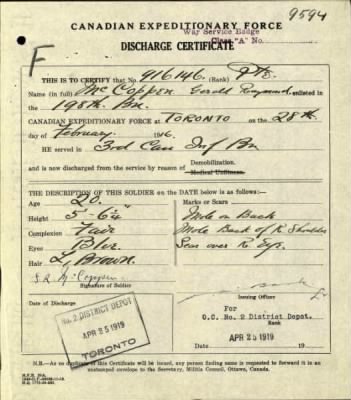 9594
CANADIAN EXPEDITIONARY FORCE
Way Service Badge
Class "A" No.
DISCHARGE CERTIFICATE
F
THIS IS TO CERTIFY that No. 916146 (Rank) Pte.
Name (in full) McCoppen Gerald Raymond enlisted in
the 198th Bn.
CANADIAN EXPEDITIONARY FORCE at TORONTO on the 28th
day of February 1916.
HE served in 3rd Can Inf Bn
and is now discharged from the service by reason of Demobilization.
Medical Unfitness.
THE DESCRIPTION OF THIS SOLDIER on the DATE below is as follows:—
Age 20. Marks or Scars
Height 5-6¼" Mole on Back
Complexion Fair Mole Back of R Shoulder
Eyes Blue Scar over R Eye.
Hair L. Brown.
McCoppen
Signature of Soldier
Issuing Officer
Date of Discharge
For
O.C. No. 2 District Depot.
Rank
No. 2 DISTRICT DEPOT
APR 25 1919
TORONTO
APR 25 1919 19
N.B.—As no duplicate of this Certificate will be issued, any person finding same is requested to forward it in an
unstamped envelope to the Secretary, Militia Council, Ottawa, Canada.